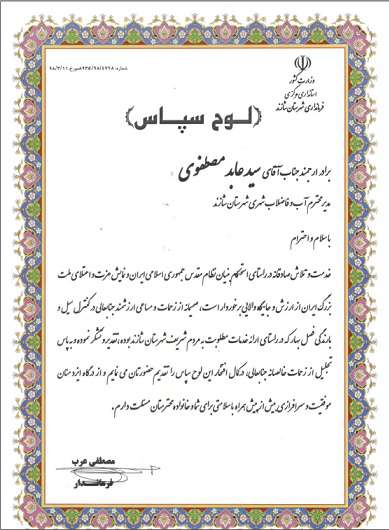 شماره: ۹۳۵/۹۸/۴۷۲۸ مورخ ۹۸/۳/۱۱
وزارت کشور
استانداری مرکزی
فرمانداری شهرستان شازند
(لوح سپاس)
برادر ارجمند جناب آقای سید عابد مصطفوی
مدیر محترم آب و فاضلاب شهری شهرستان شازند
با سلام و احترام
خدمت و تلاش صادقانه در راستای استحکام بنیان نظام مقدس جمهوری اسلامی ایران و نمایش عزت و اعتلای ملت
بزرگ ایران از ارزش و جایگاه والایی برخوردار است، صمیمانه از زحمات و مساعی ارزشمند جنابعالی در کنترل سیل و
بارندگی فصل بهار که در راستای ارائه خدمات مطلوب به مردم شریف شهرستان شازند بوده، تقدیر و تشکر نموده و به پاس
تجلیل از زحمات خالصانه جنابعالی، در کمال افتخار این لوح سپاس را تقدیم حضورتان می نمایم و از درگاه ایزد منان
موفقیت و سرافرازی بیش از پیش همراه با سلامتی برای شما و خانواده محترمتان مسئلت دارم.
مصطفی عرب
فرماندار